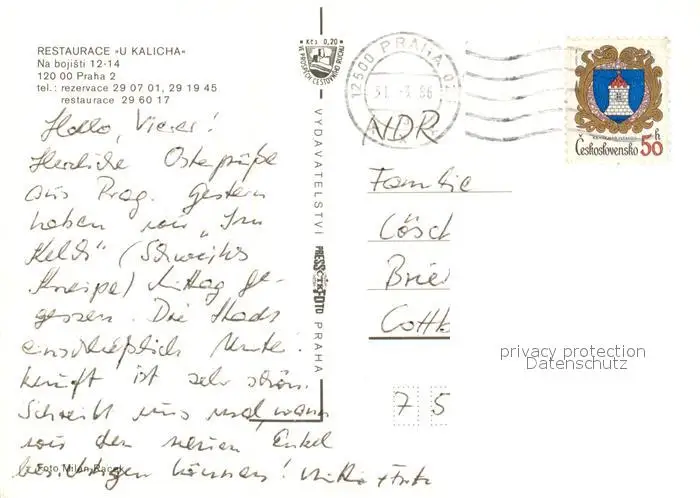 RESTAURACE »U KALICHA«
Na bojišti 12-14
120 00 Praha 2
tel.: rezervace 29 07 01, 29 19 45
restaurace 29 60 17
Hallo, Vierer!
Herzliche Ostergrüße
aus Prag. Gestern
haben wir „Im
Kelch" (Schwejks
Kneipe) Mittag ge-
gessen. Die Stadt
einschließlich Unter-
kunft ist sehr schön.
Schreibt uns mal, wann
wir den neuen Enkel
besichtigen können!
Foto Milan
Kčs 0,20
VE PROSPĚCH CESTOVNÍHO RUCHU
VYDAVATELSTVÍ PRESSFOTO PRAHA
12500 PRAHA 025
31.-3.86
Československo 50 h
NDR
Familie
Lösch
Brie
Cottb
7 5
privacy protection
Datenschutz